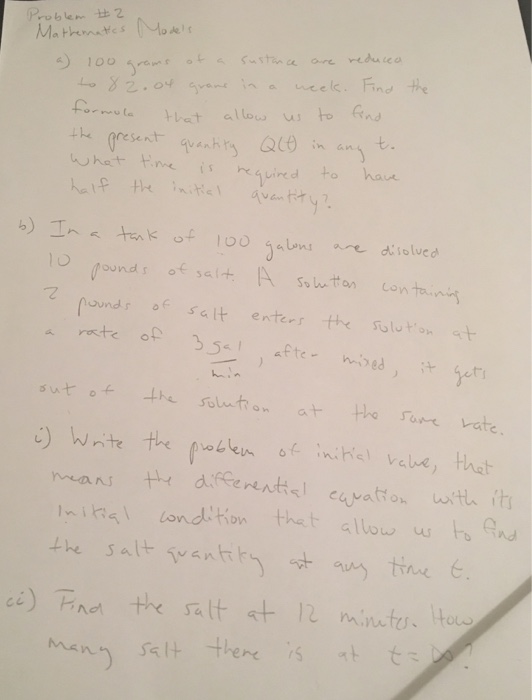 Problem #2
Mathematics Models
a) 100 grams of a sustance are reduced
to 82.04 grams in a week. Find the
formula that allow us to find
the present quantity Q(t) in any t.
What time is required to have
half the initial quantity?
b) In a tank of 100 galons are disolved
10 pounds of salt. A solution containing
2 pounds of salt enters the solution at
a rate of 3 gal/min, after mixed, it gets
out of the solution at the same rate.
i) Write the problem of initial value, that
means the differential equation with its
initial condition that allow us to find
the salt quantity at any time t.
ii) Find the salt at 12 minutes. How
many salt there is at t=∞?